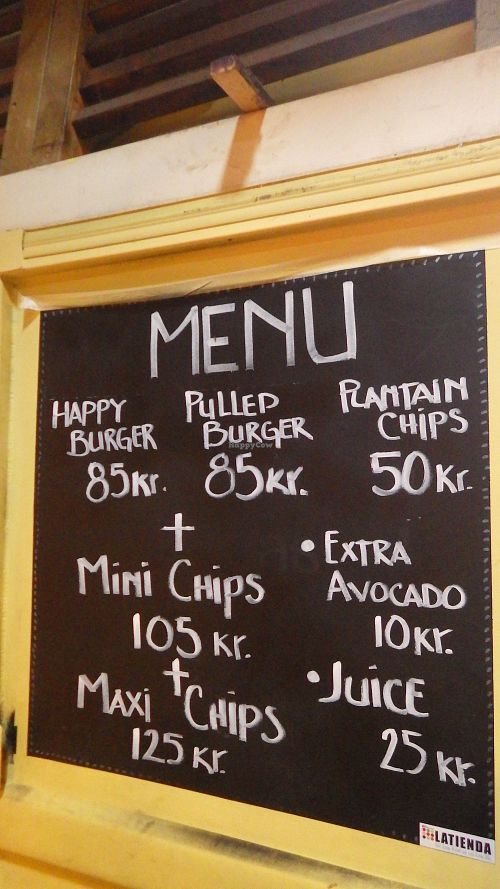 MENU
HAPPY
BURGER
85 Kr.
PULLED
BURGER
85 Kr.
PLANTAIN
CHIPS
50 Kr.
+
MiNi CHiPS
105 Kr.
+
MAXi CHiPS
125 Kr.
• EXTRA
AVOCADO
10 Kr.
• JUiCE
25 Kr.
LATIENDA
HappyCow